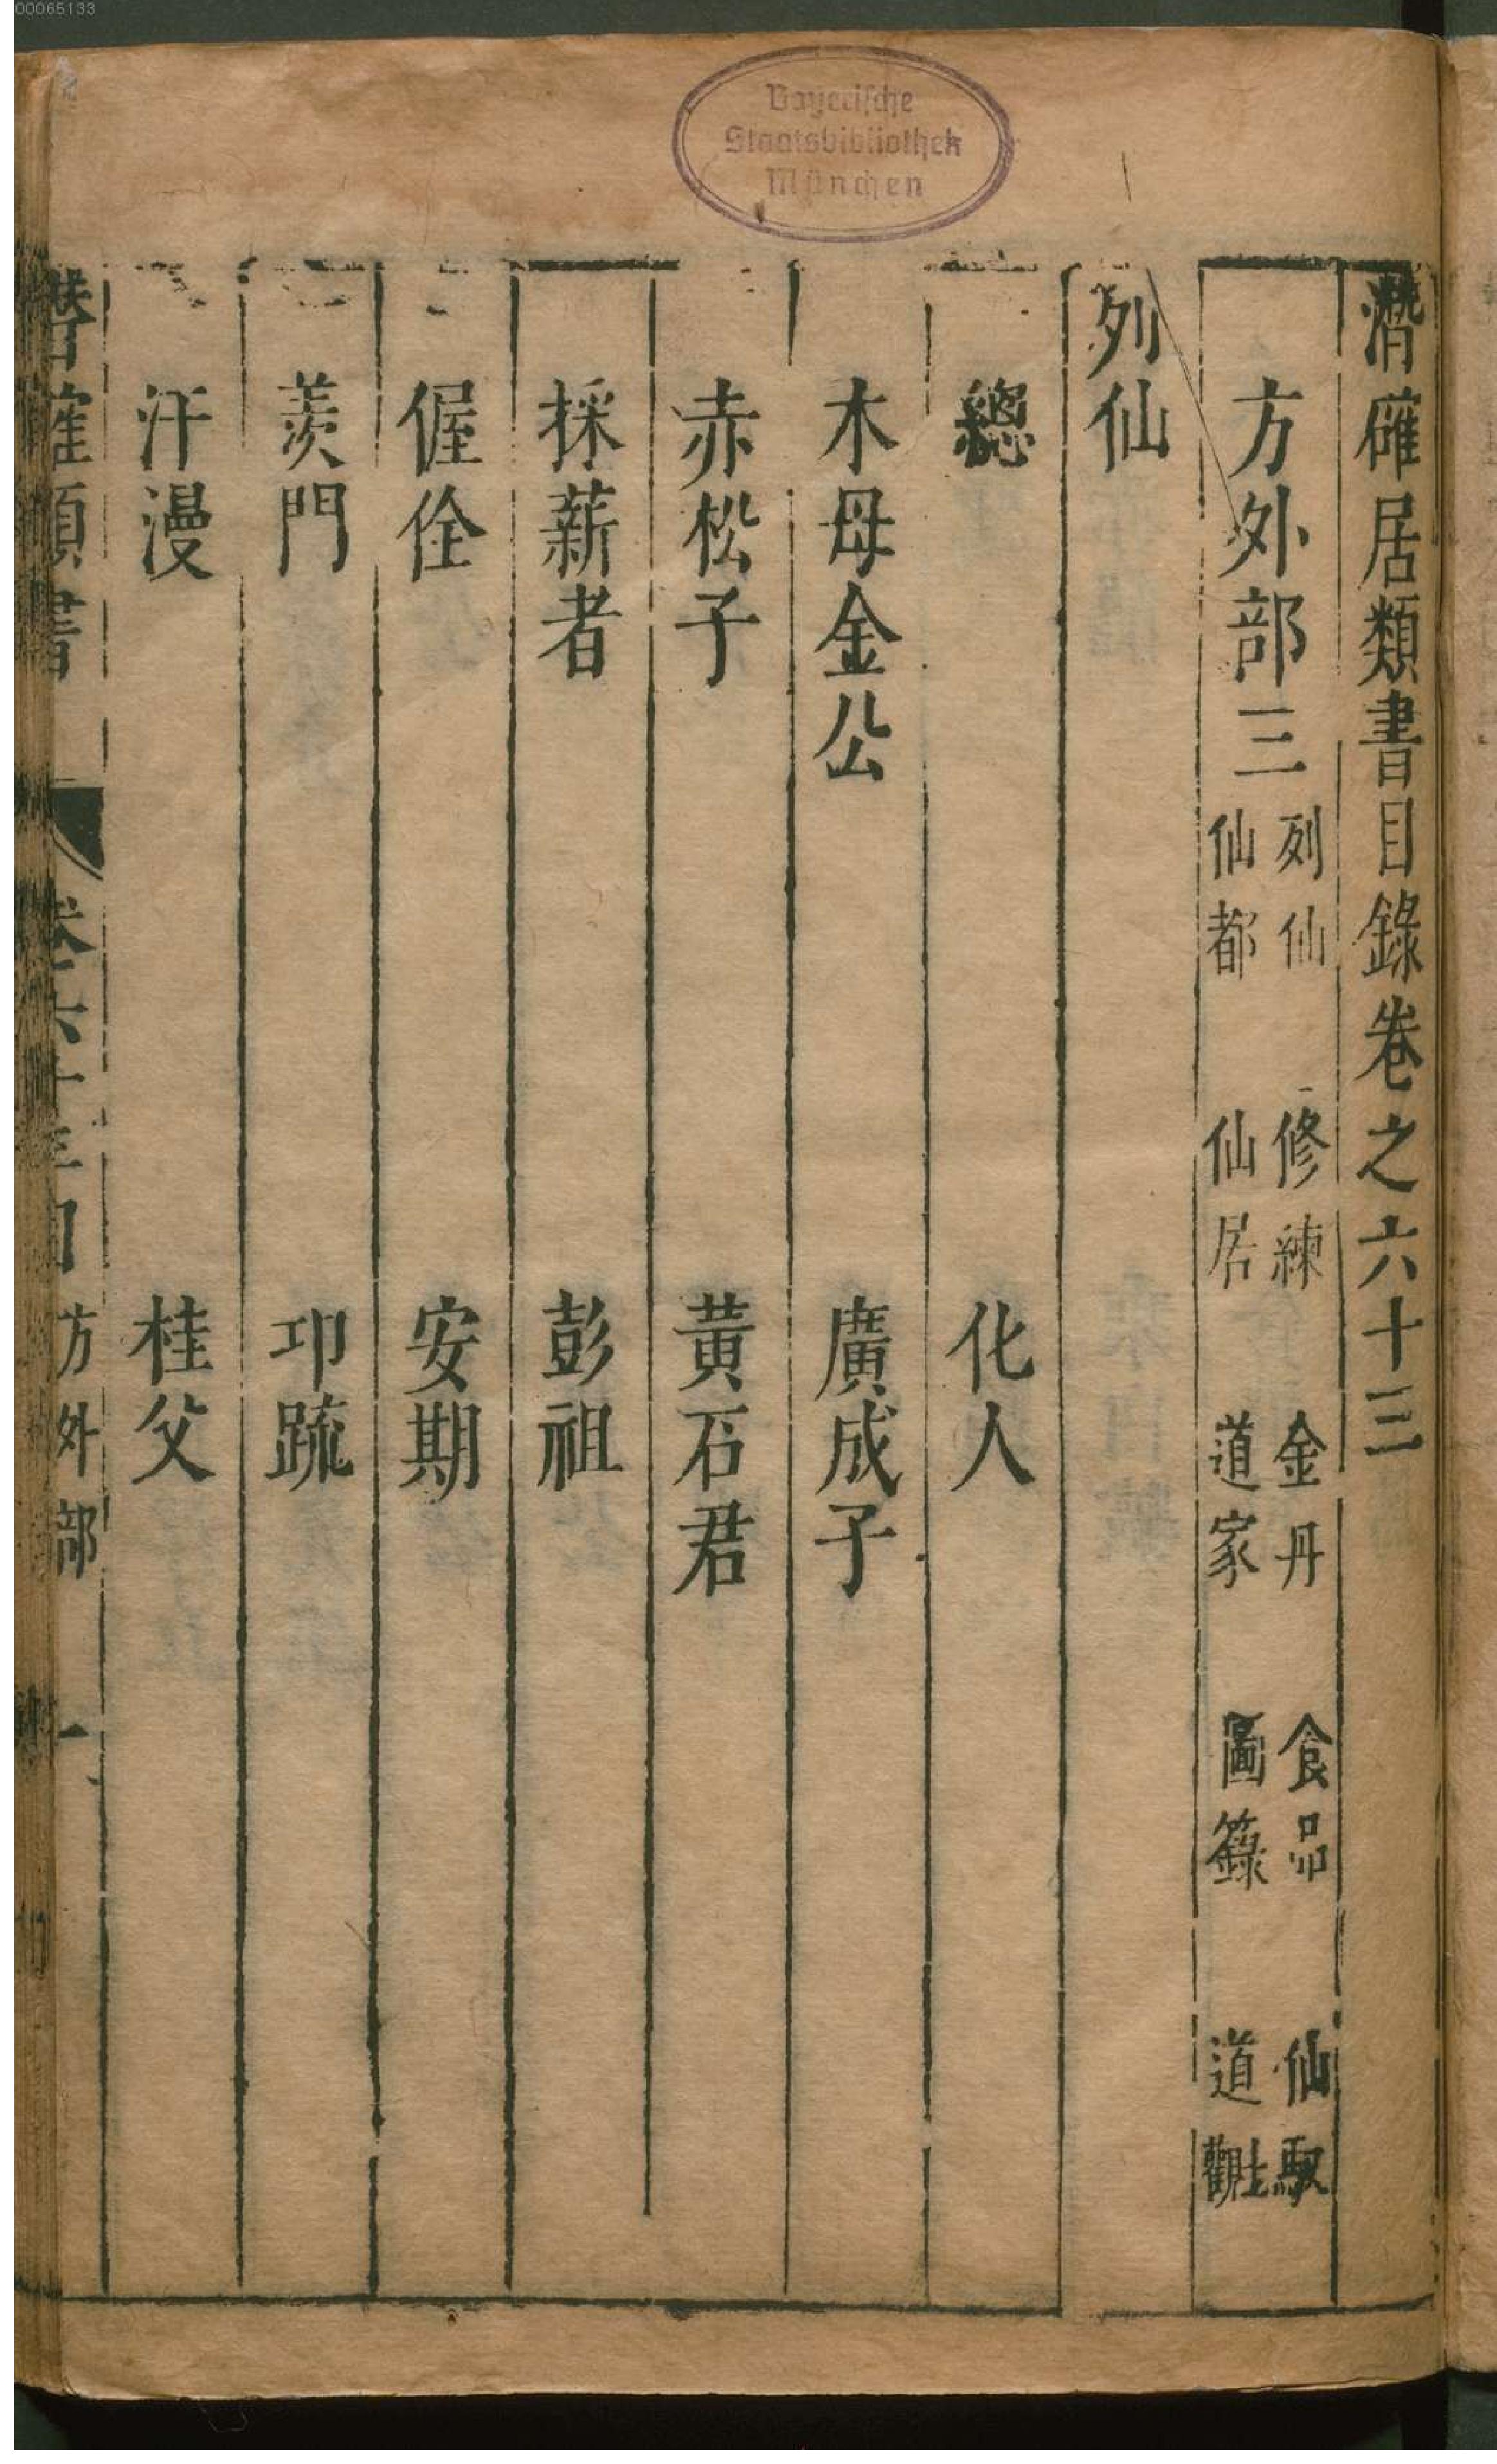 潛確居類書目錄卷之六十三
方外部三 列仙 修練 金丹 食品 仙馭
仙都 仙居 道家 圖籙 道觀
列仙
總 化人
木母金公 廣成子
赤松子 黃石君
採薪者 彭祖
偓佺 安期
羨門 邛疏
汗漫 桂父
潛確類書 卷六十三目 方外部 一
Bayerische
Staatsbibliothek
München
00065133